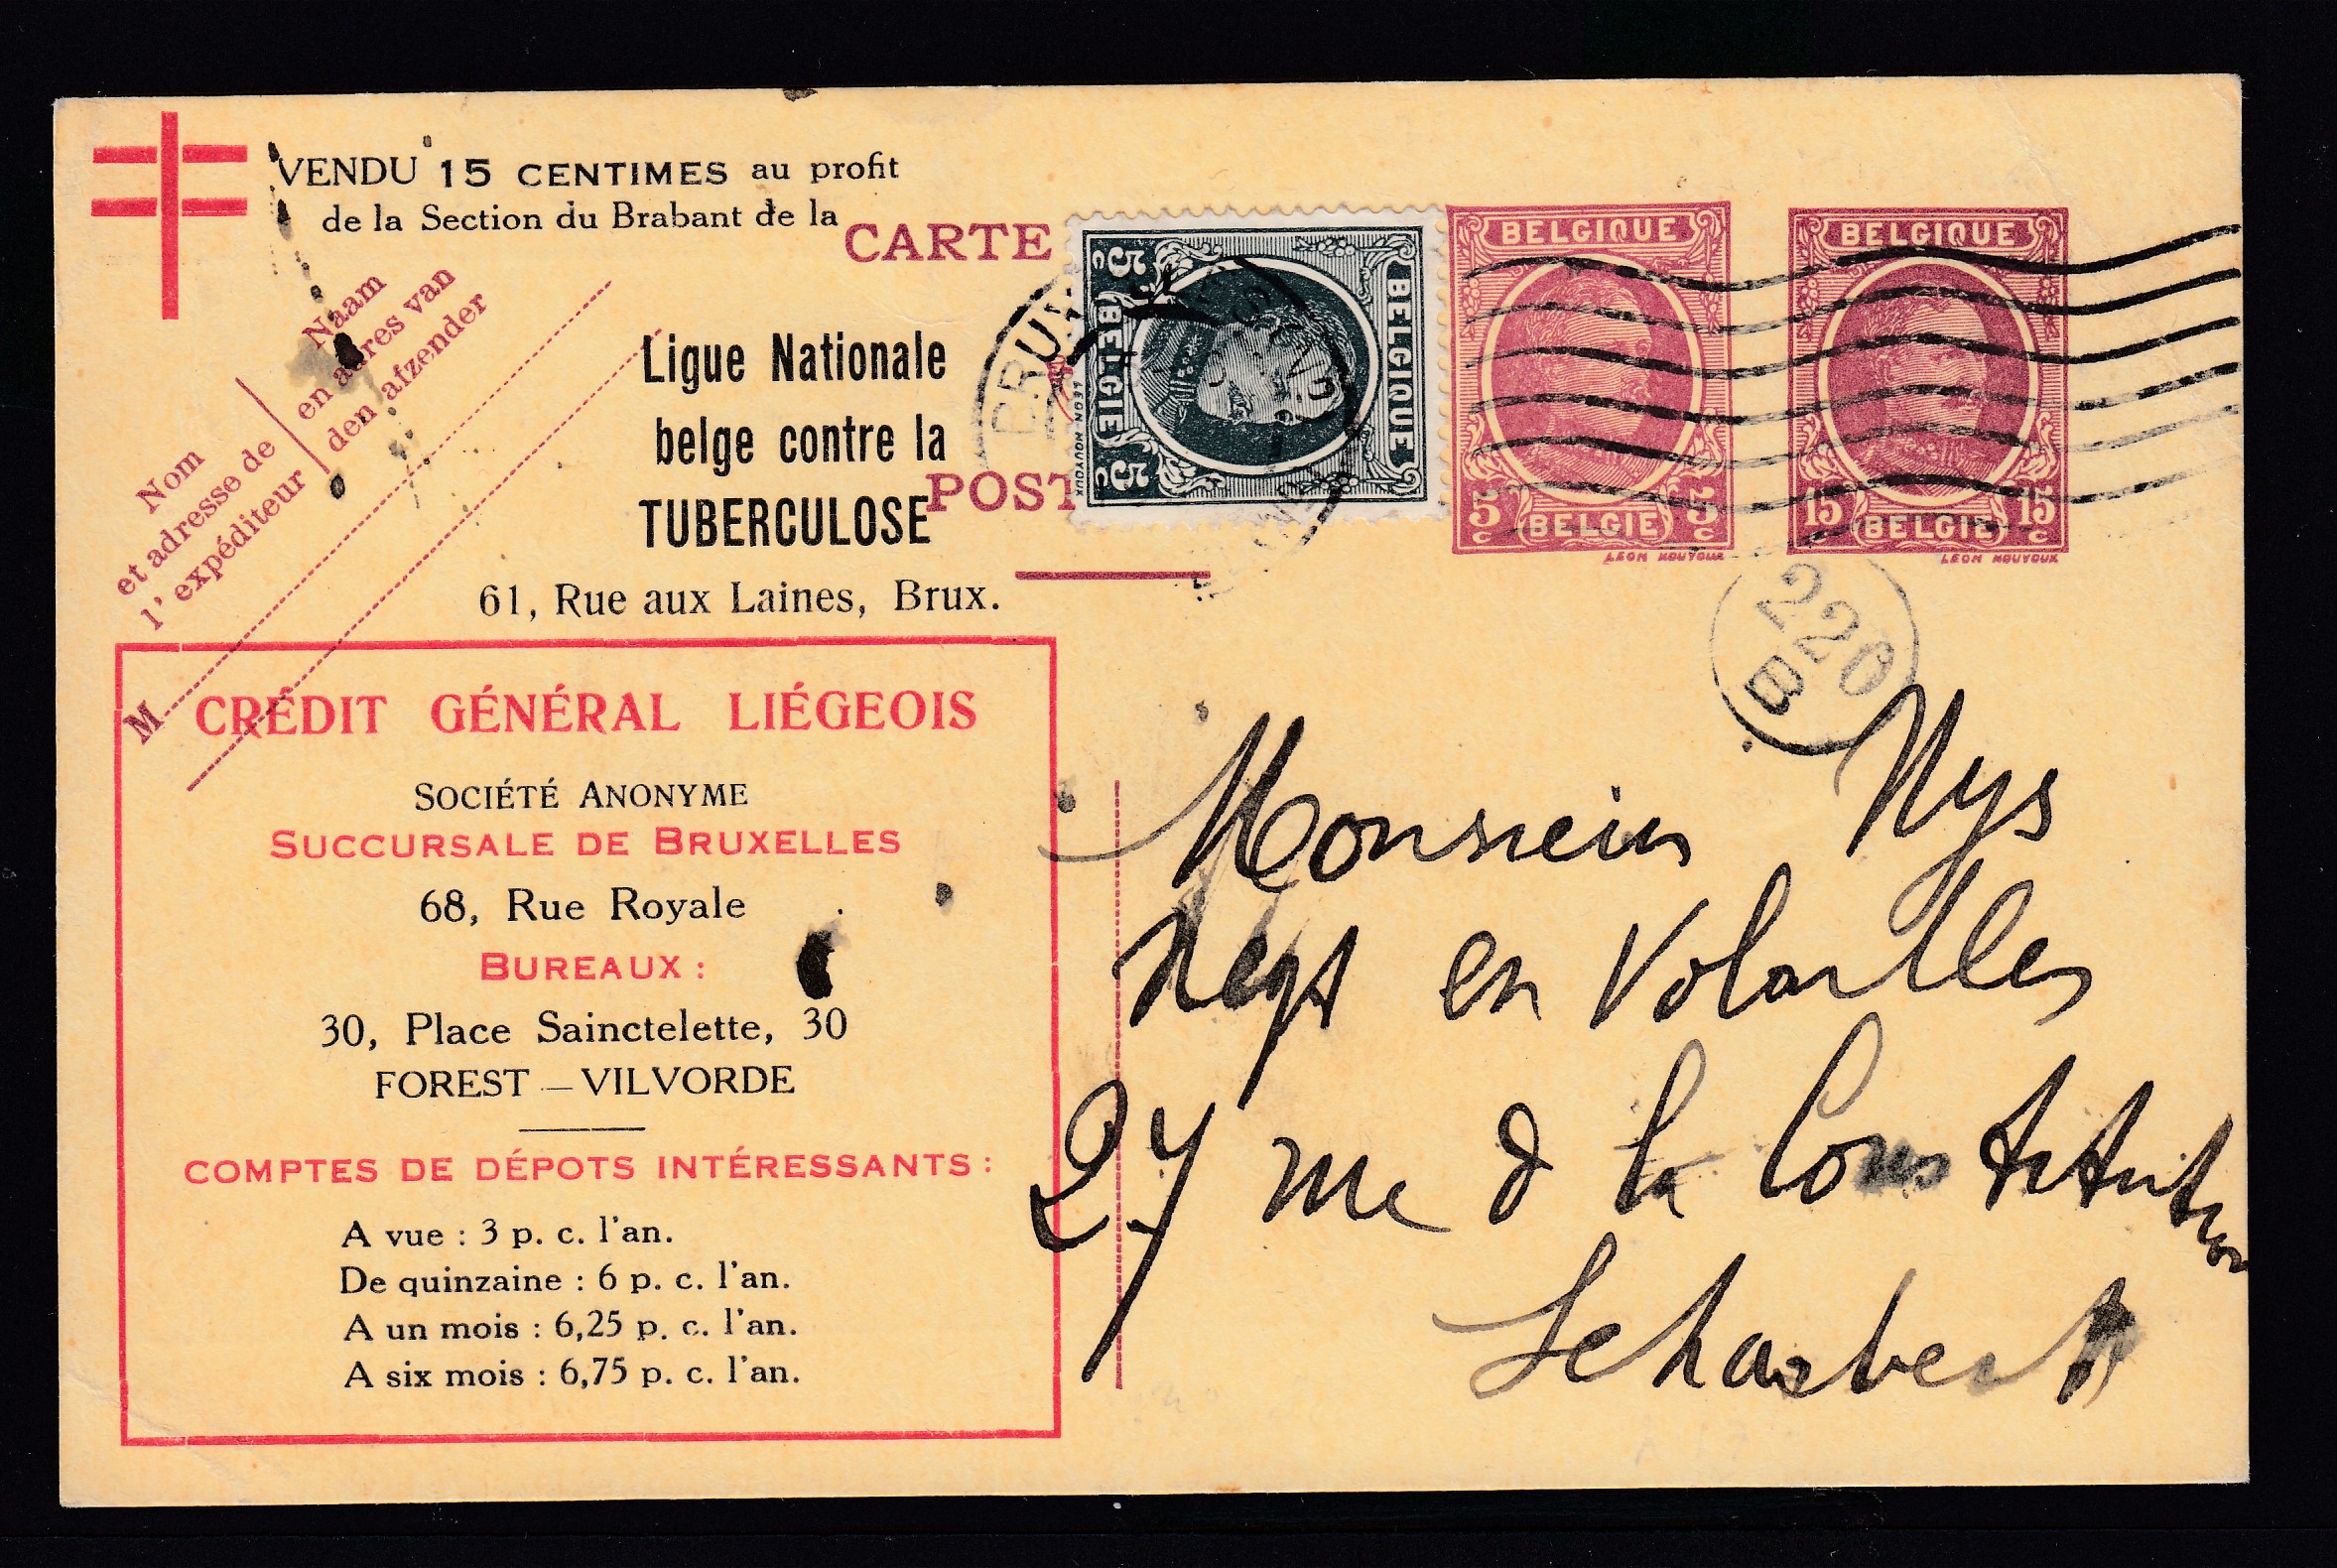 VENDU 15 CENTIMES au profit
de la Section du Brabant de la
CARTE
Naam
en adres van
den afzender
Nom
et adresse de
l' expéditeur
M
Ligue Nationale
belge contre la
TUBERCULOSE
POST
61, Rue aux Laines, Brux.
BELGIQUE
5c 5c
BELGIE
LEON HOUYOUX
BELGIQUE
5c 5c
BELGIE
LEON HOUYOUX
BELGIQUE
15c 15c
BELGIE
LEON HOUYOUX
220
B
CRÉDIT GÉNÉRAL LIÉGEOIS
SOCIÉTÉ ANONYME
SUCCURSALE DE BRUXELLES
68, Rue Royale
BUREAUX :
30, Place Sainctelette, 30
FOREST — VILVORDE
COMPTES DE DÉPOTS INTÉRESSANTS :
A vue : 3 p. c. l'an.
De quinzaine : 6 p. c. l'an.
A un mois : 6,25 p. c. l'an.
A six mois : 6,75 p. c. l'an.
Monsieur Nys
Negt en Volailles
27 rue d la Constitution